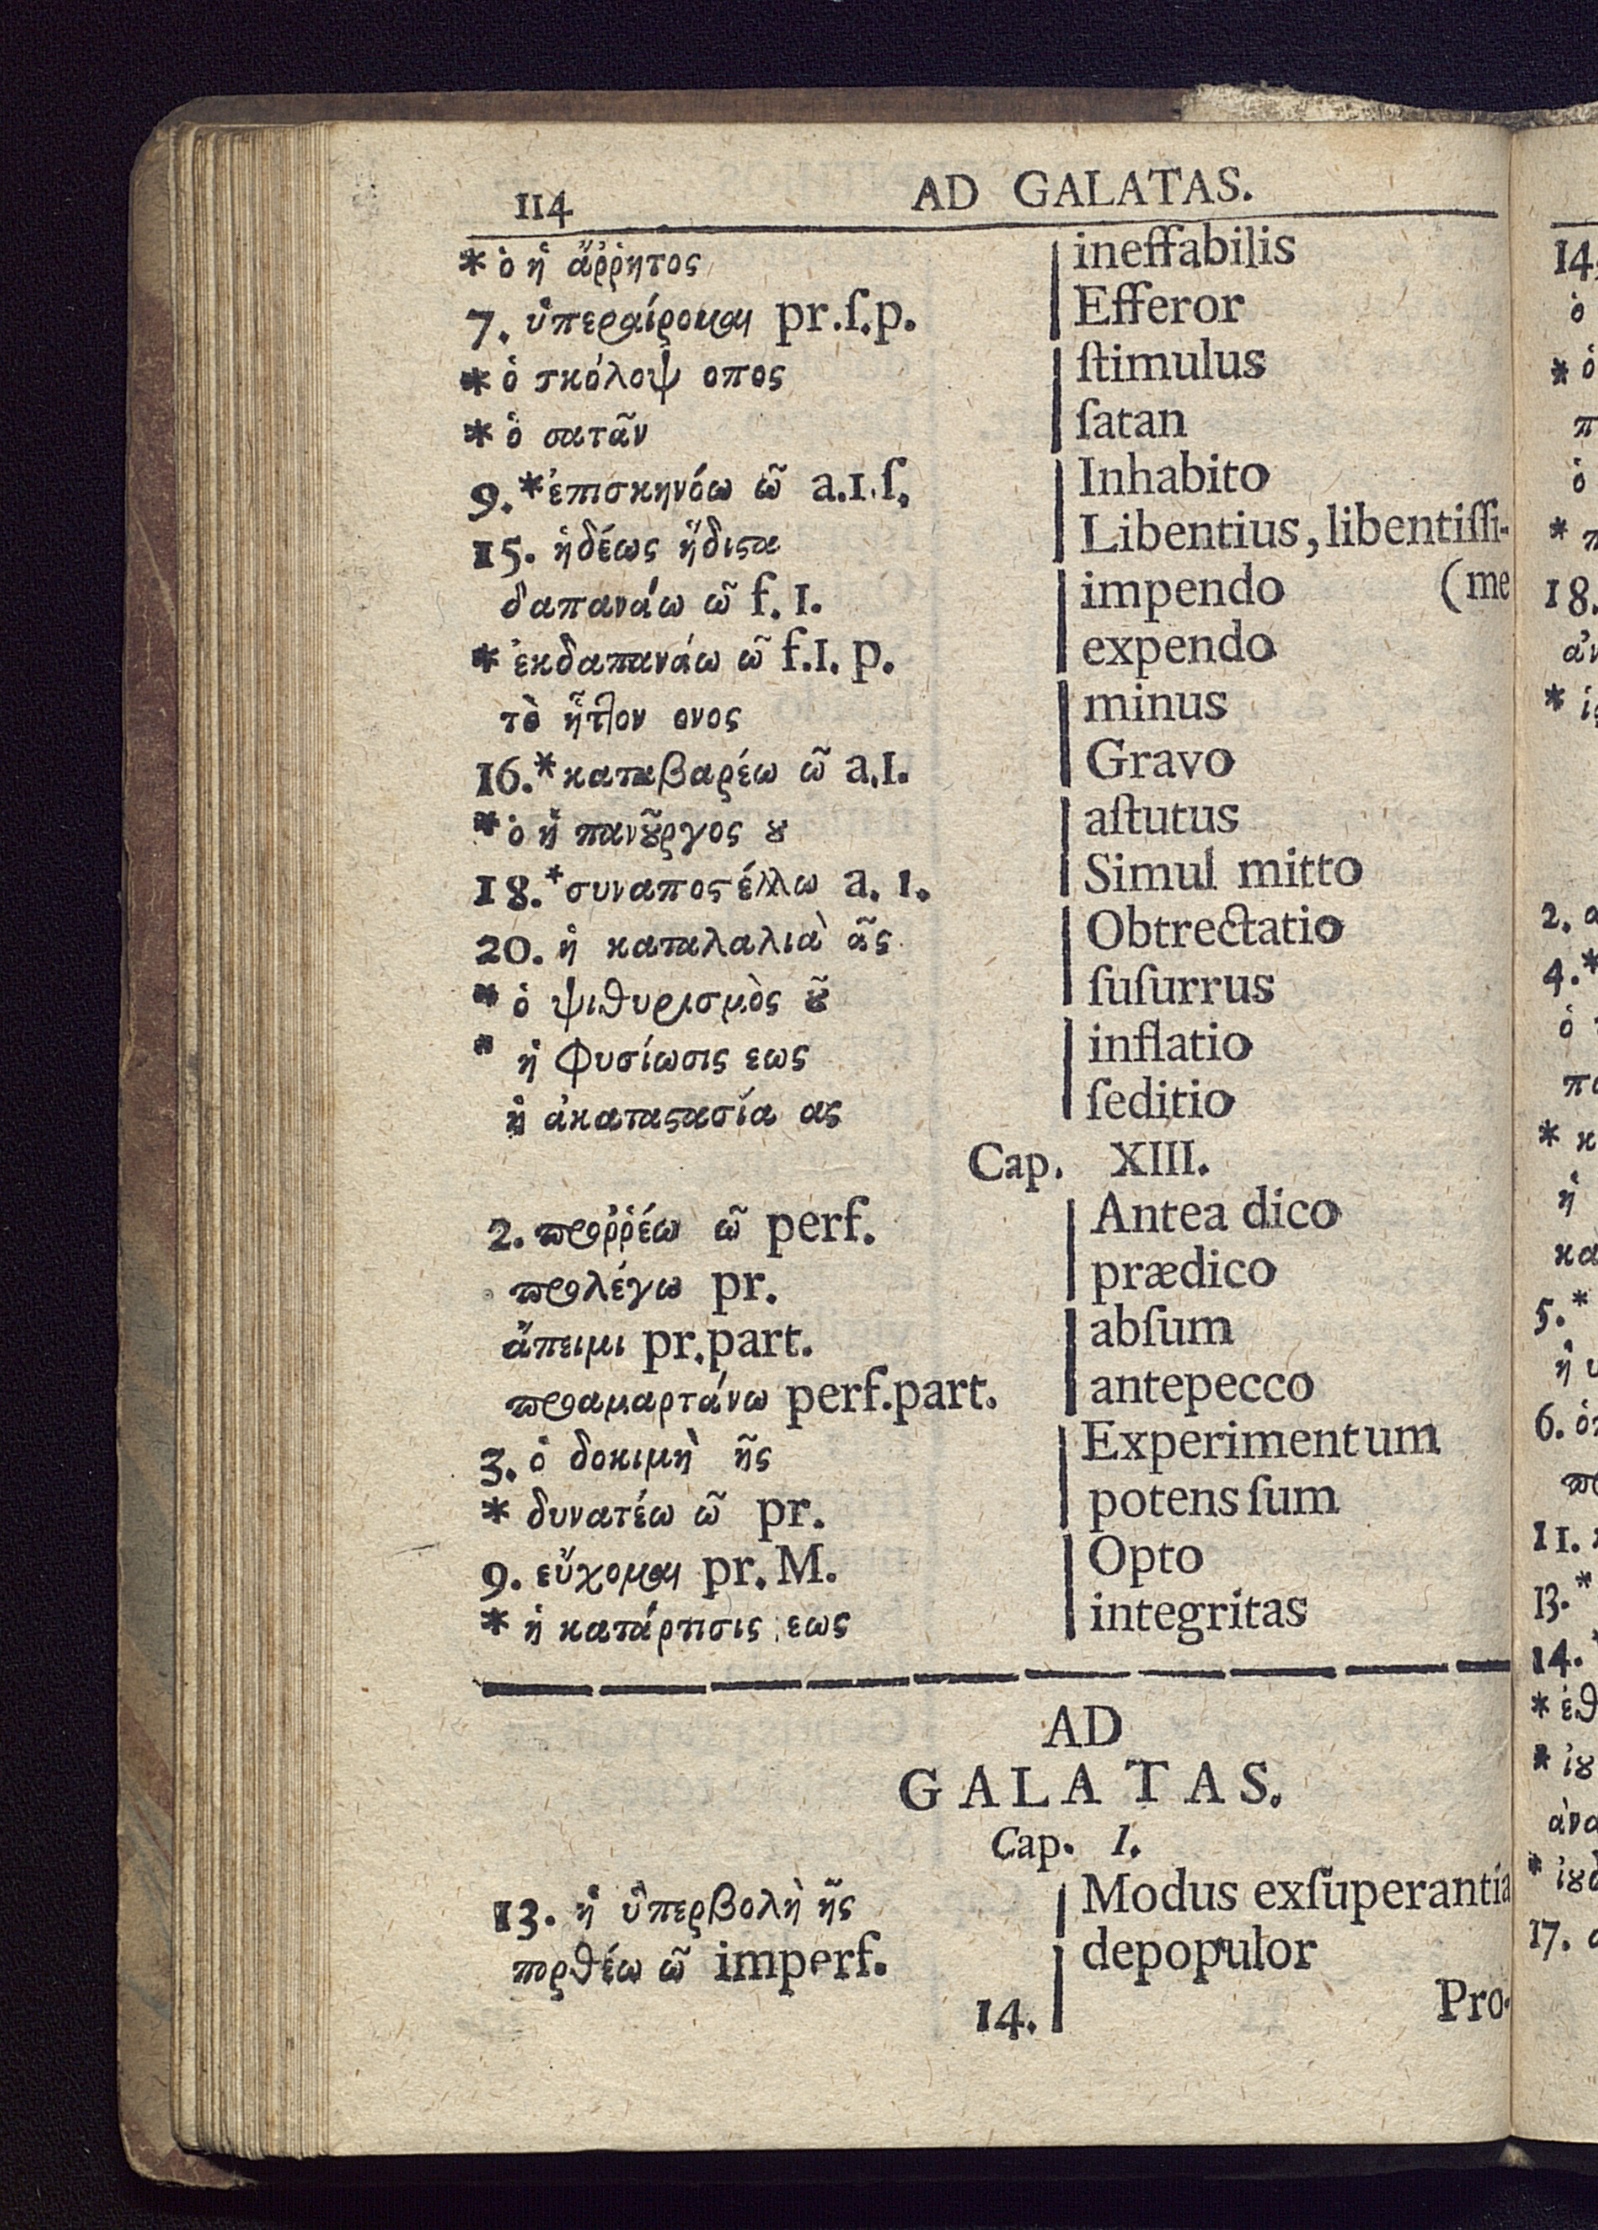 114 AD GALATAS.
* ὁ ἡ ἄῤῥητος ineffabilis
7. ὑπεραίρομαι pr.ſ.p. Efferor
* ὁ σκόλοψ οπος ſtimulus
* ὁ σατᾶν ſatan
9. * ἐπισκηνόω ῶ a.1.ſ. Inhabito
15. ἡδέως ἥδιϛα Libentius, libentiſſi-
δαπανάω ῶ f. 1. impendo (me
* ἐκδαπανάω ῶ f.1. p. expendo
τὸ ἧτ̃τον ονος minus
16. * καταβαρέω ῶ a.1. Gravo
* ὁ ἡ πανȣ͂ργος ȣ aſtutus
18. * συναποϛέλλω a. 1. Simul mitto
20. ἡ καταλαλιὰ ᾶς Obtrectatio
* ὁ ψιθυρισμὸς ȣ͂ ſuſurrus
* ἡ φυσίωσις εως inflatio
ἡ ἀκαταϛασία ας ſeditio
Cap. XIII.
2. προῤῥέω ῶ perf. Antea dico
προλέγω pr. prædico
ἄπειμι pr.part. abſum
προαμαρτάνω perf.part. antepecco
3. ὁ δοκιμὴ ῆς Experimentum
* δυνατέω ῶ pr. potens ſum
9. εὔχομαι pr. M. Opto
* ἡ κατάρτισις εως integritas
AD
GALATAS.
Cap. I.
13. ἡ ὑπερβολὴ ῆς Modus exſuperantia
πορθέω ῶ imperf. depopulor
14. Pro-
14.
ὁ
* ὁ
π
ὁ
* π
18.
ἀν
* ἱϛ
2. α
4. *
ὁ
πα
* κ
ἡ
κα
5. *
ἡ υ
6. ὁ
προ
11.
13. *
14. *
* ἐθ
* ἰȣ
ἀνα
* ἰȣδ
17. α